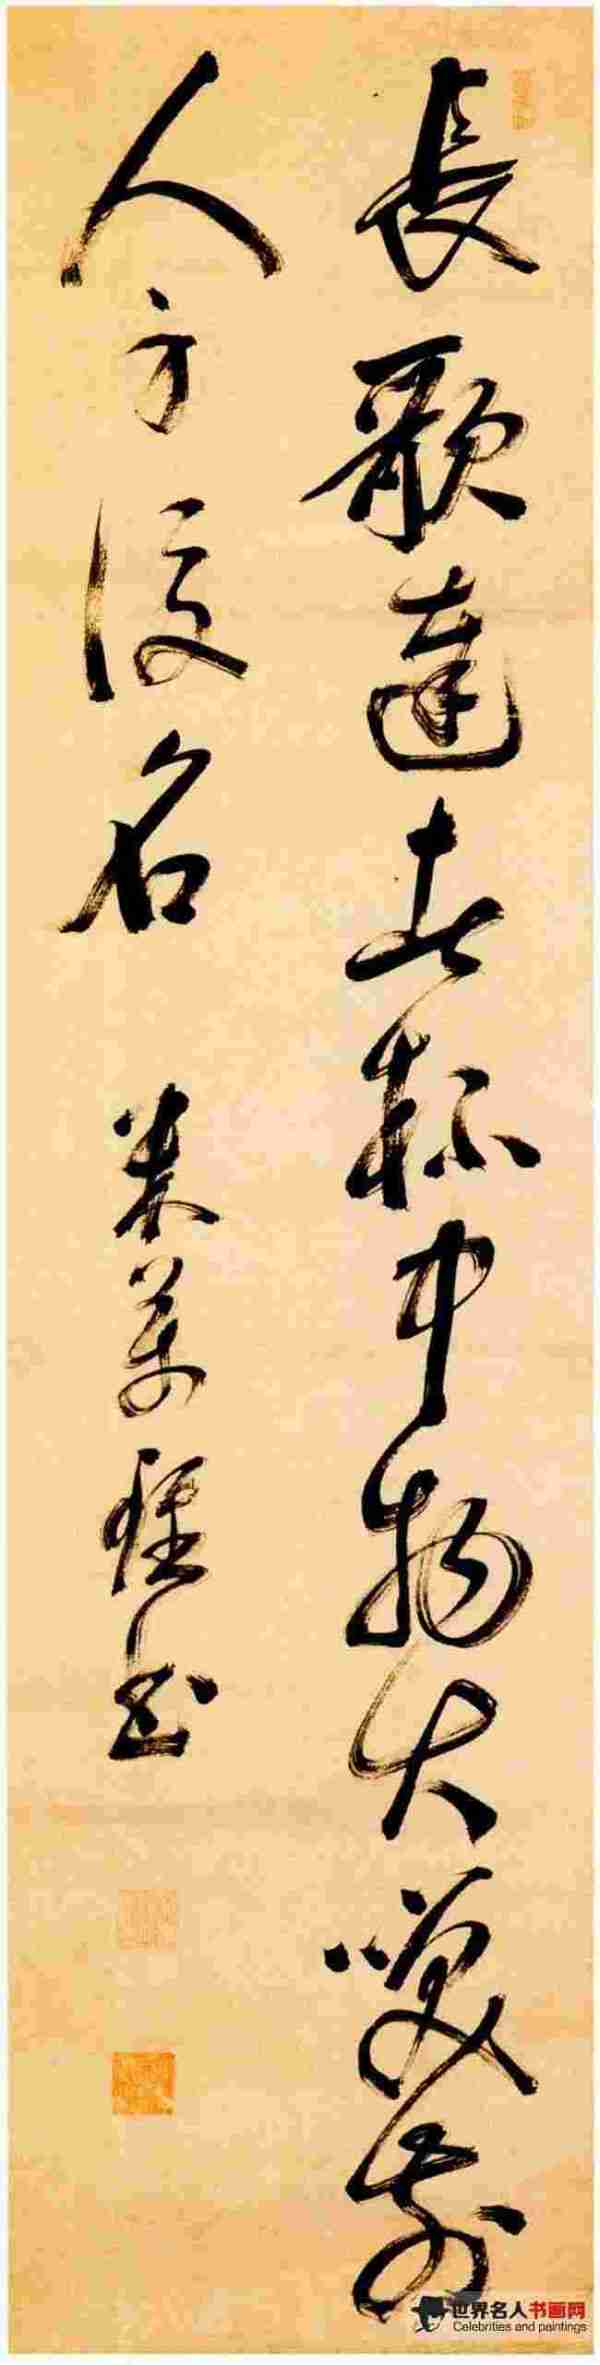 長歌達者杯中物大笑前
人身後名 米萬鍾書
世界名人书画网
Celebrities and paintings